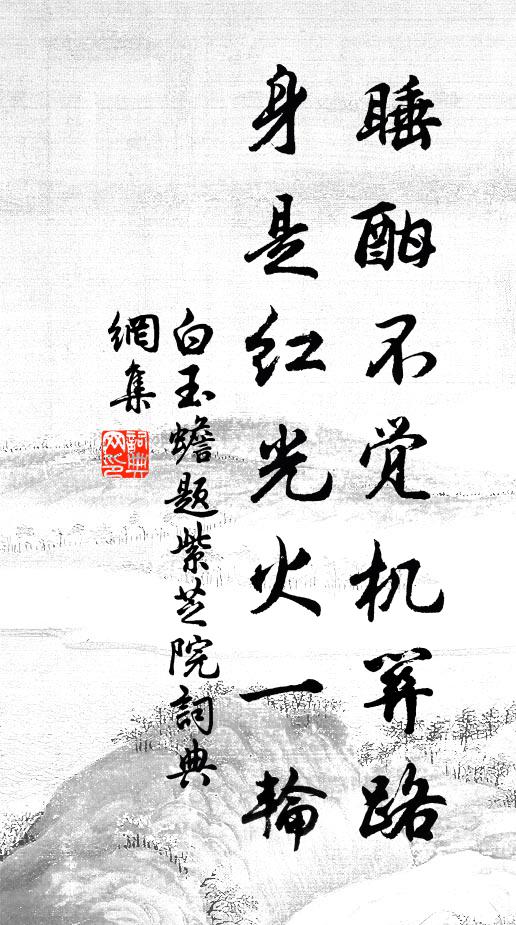 睡酣不觉机穽路
身是红光火一輪
白玉蟾题紫芝院詞典
網集
詞典
网印